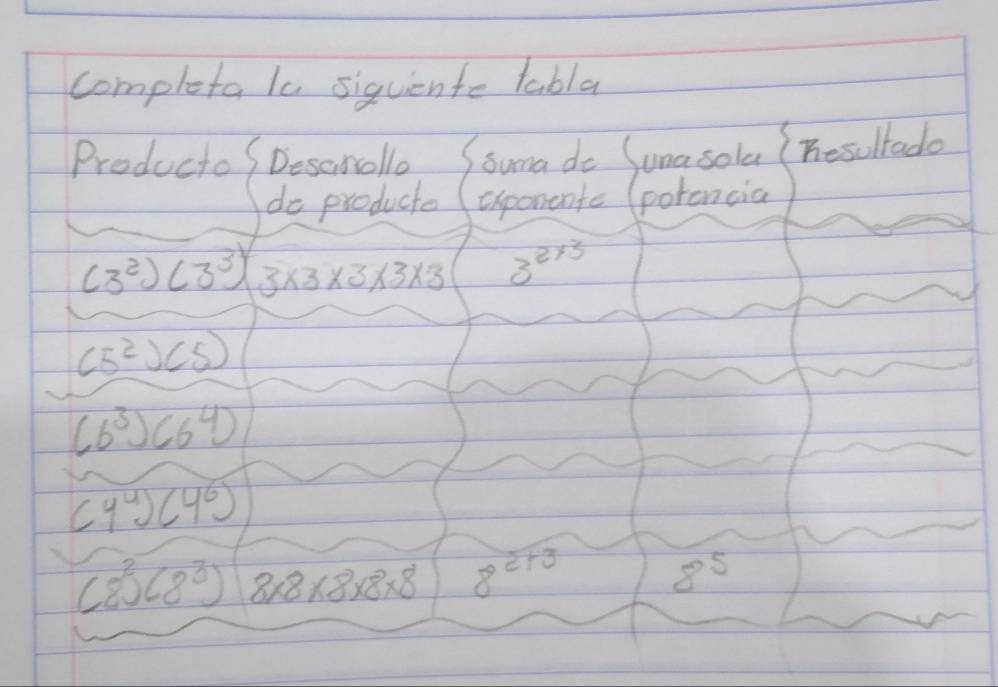 completa la siguiente tabla
Producto Desarrollo do producto Suma de exponente una sola potencia Resultado
(3²)(3³) 3x3x3x3x3 3²⁺³
(5²)(5)
(6³)(6⁴)
(4⁴)(4⁶)
(8²)(8³) 8x8x8x8x8 8²⁺³ 8⁵